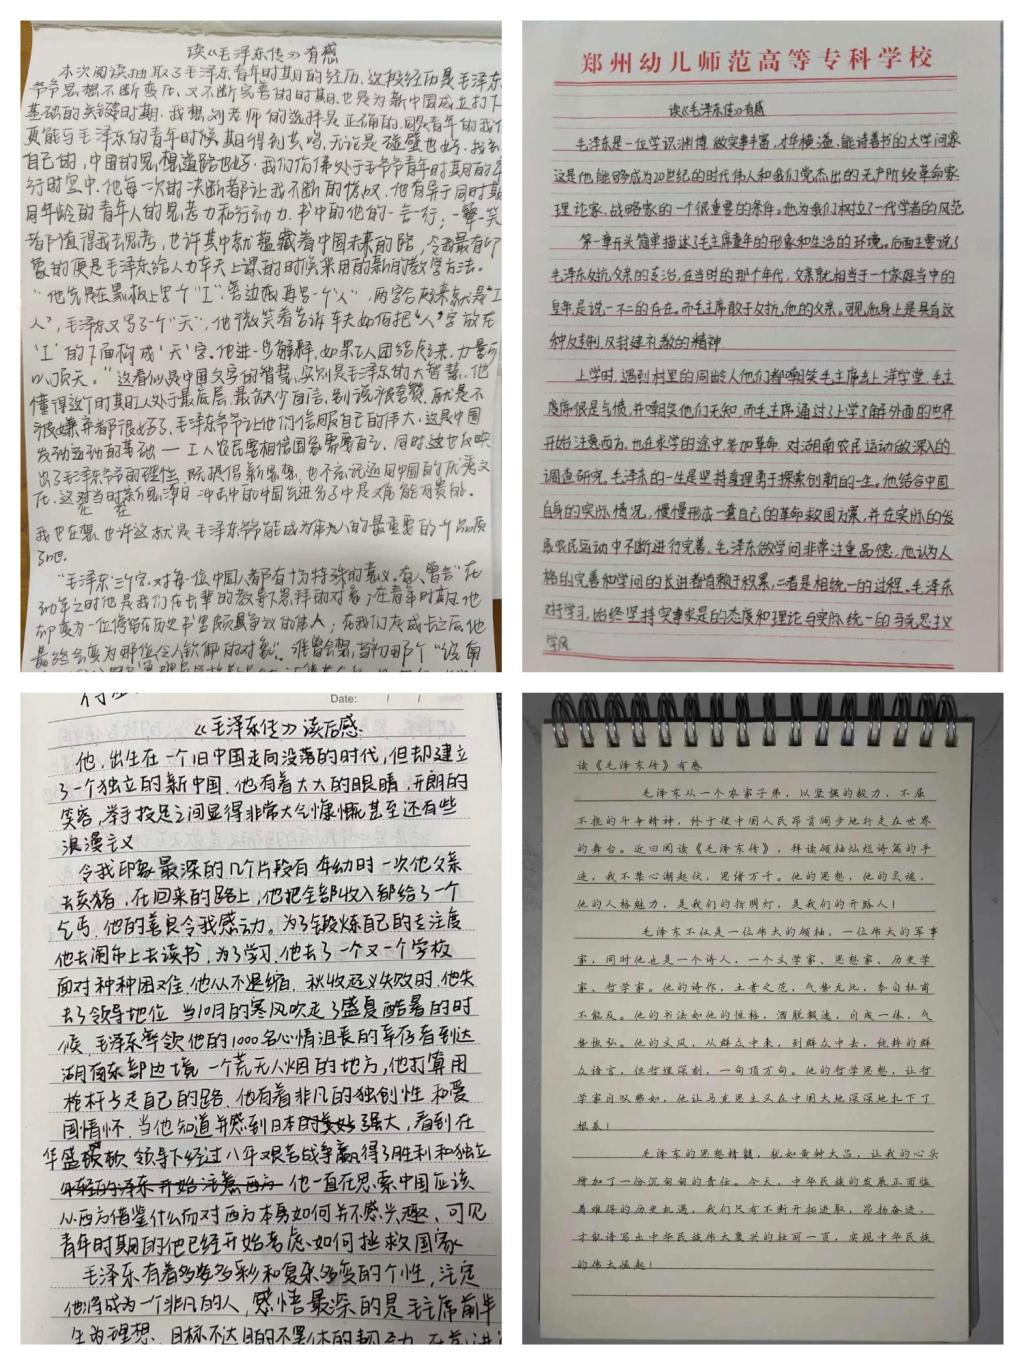 读《毛泽东传》有感
本次阅读抽取了毛泽东青年时期的经历,这段经历是毛泽东
爷爷思想不断变化、又不断完善的时期,也是为新中国成立打下
基础的关键时期.我想刘老师的选择是正确的,同为青年的我们
更能与毛泽东的青年时候期得到共鸣,无论是碰壁也好.找到
自己的,中国的思想道路也好.我们仿佛处于毛爷爷青年时期的平
行时空中,他每一次的决断都让我不断的惊叹,他有异于同时期
同年龄的青年人的思考力和行动力.书中的他的一言一行,一颦一笑
都值得我去思考,也许其中就蕴藏着中国未来的路,令我最有印
象的便是毛泽东给人力车夫上课的时候采用的新的教学方法。
"他先是在黑板上写个"工",旁边再写一个"人",两字合起来就是"工
人",毛泽东又写了个"天",他微笑着告诉车夫如何把"人"字放在
"工"的下面构成"天"字,他进一步解释,如果工人团结起来,力量可
以顶天。"这看似是中国文字的智慧,实则是毛泽东的大智慧,他
懂得这个时期工人处于最底层,最缺少自信,别说被夸赞,就是不
被嫌弃都很好了,毛泽东爷爷让他们信服自己的伟大,这是中国
发动运动的基础——工人农民要相信国家需要自己,同时这也反映
出了毛泽东爷爷的理性,既提倡新思想,也不忘记运用中国的优秀文
化,这在当时新思潮冲击中的中国先进分子中是又难能可贵的。
我也在想,也许这就是毛泽东爷爷能成为伟人的最重要的一个品质
了吧。
"毛泽东"三个字,对每一位中国人都有十分特殊的意义。有人曾言"在
幼年之时他是我们在长辈的教导下思拜的对象;在青年时期,他
却变为一位停留在历史书里颇具争议的伟人;在我们灰成长之后,他
最终会变为那位令人钦佩的对象"。谁曾会想,当初那个"
郑州幼儿师范高等专科学校
读《毛泽东传》有感
毛泽东是一位学识渊博,做实事丰富,才华横溢,能诗善书的大学问家
这是他能够成为20世纪的时代伟人和我们党杰出的无产阶级革命家
理论家,战略家的一个很重要的条件。他为我们树立了一代学者的风范
第一章开头简单描述了毛主席童年的形象和生活的环境。后面主要说了
毛泽东反抗父亲的专治,在当时的那个年代,父亲就相当于一个家庭当中的
皇帝,是说一不二的存在。而毛主席敢于反抗他的父亲。可见他身上是具有这
种反专制,反封建礼教的精神
上学时,遇到村里的同龄人他们都嘲笑毛主席去上洋学堂,毛主
席很是气愤,并嘲笑他们无知,而毛主席通过了上学了解外面的世界
开始注意西方,也在求学的途中参加革命.对湖南农民运动做深入的
调查研究。毛泽东的一生是坚持真理勇于探索创新的一生。他结合中国
自身的实际情况,慢慢形成一套自己的革命救国方案,并在实际的发
展农民运动中不断进行完善,毛泽东做学问非常注重品德,他认为人
格的完善和学问的长进都有赖于积累,二者是相统一的过程。毛泽东
对于学习,始终坚持实事求是的态度和理论与实际统一的马克思主义
学风
Date: / /
《毛泽东传》读后感.
他,出生在一个旧中国走向没落的时代,但却建立
了一个独立的新中国,他有着大大的眼睛,开朗的
笑容,举手投足之间显得非常大气慷慨甚至还有些
浪漫主义
令我印象最深的几个片段有年幼时一次他父亲
去卖猪,在回来的路上,他把全部收入都给了一个
乞丐,他的善良令我感动。为了锻炼自己的专注度
他去闹市上去读书,为了学习,他去了一个又一个学校
面对种种困难,他从不退缩.秋收起义失败时,他失
去了领导地位 当10月的寒风吹走了盛夏酷暑的时
候,毛泽东率领他的1000名心情沮丧的幸存者到达
湖南东部边境一个荒无人烟的地方,他打算用
枪杆子走自己的路.他有着非凡的独创性和爱
国情怀,当他知道并感到日本的强大,看到在
华盛顿领导下经过八年艰苦战争赢得了胜利和独立
年轻的泽东开始注意西方 他一直在思索中国应该
从西方借鉴什么而对西方本身如何并不感兴趣.可见
青年时期的他已经开始考虑如何拯救国家
毛泽东有着多姿多彩和复杂多变的个性,注定
他将成为一个非凡的人,感悟最深的是毛主席前半
生为理想、目标不达目的不罢休的
读《毛泽东传》有感
毛泽东从一个农家子弟,以坚强的毅力,不屈
不挠的斗争精神,终于使中国人民昂首阔步地行走在世界
的舞台。近日阅读《毛泽东传》,拜读领袖灿烂诗篇的手
迹,我不禁心潮起伏,思绪万千。他的思想,他的灵魂,
他的人格魅力,是我们的指明灯,是我们的开路人!
毛泽东不仅是一位伟大的领袖,一位伟大的军事
家,同时他也是一个诗人,一个文学家、思想家,历史学
家、哲学家。他的诗作,土著之花,气势无比,李白杜甫
不能及。他的书法如他的性格,洒脱飘逸,自成一体,气
势恢弘。他的文风,从群众中来,到群众中去,纯粹的群
众语言,但哲理深刻,一句顶万句。他的哲学思想,让哲
学家自叹弗如,他让马克思主义在中国大地深深地扎下了
根基!
毛泽东的思想精髓,犹如黄钟大吕,让我的心头
增加了一份沉甸甸的责任。今天,中华民族的发展正面临
着难得的历史机遇,我们只有不断开拓进取,昂扬奋进,
才能谱写出中华民族伟大复兴的壮丽一页,实现中华民族
的伟大崛起!